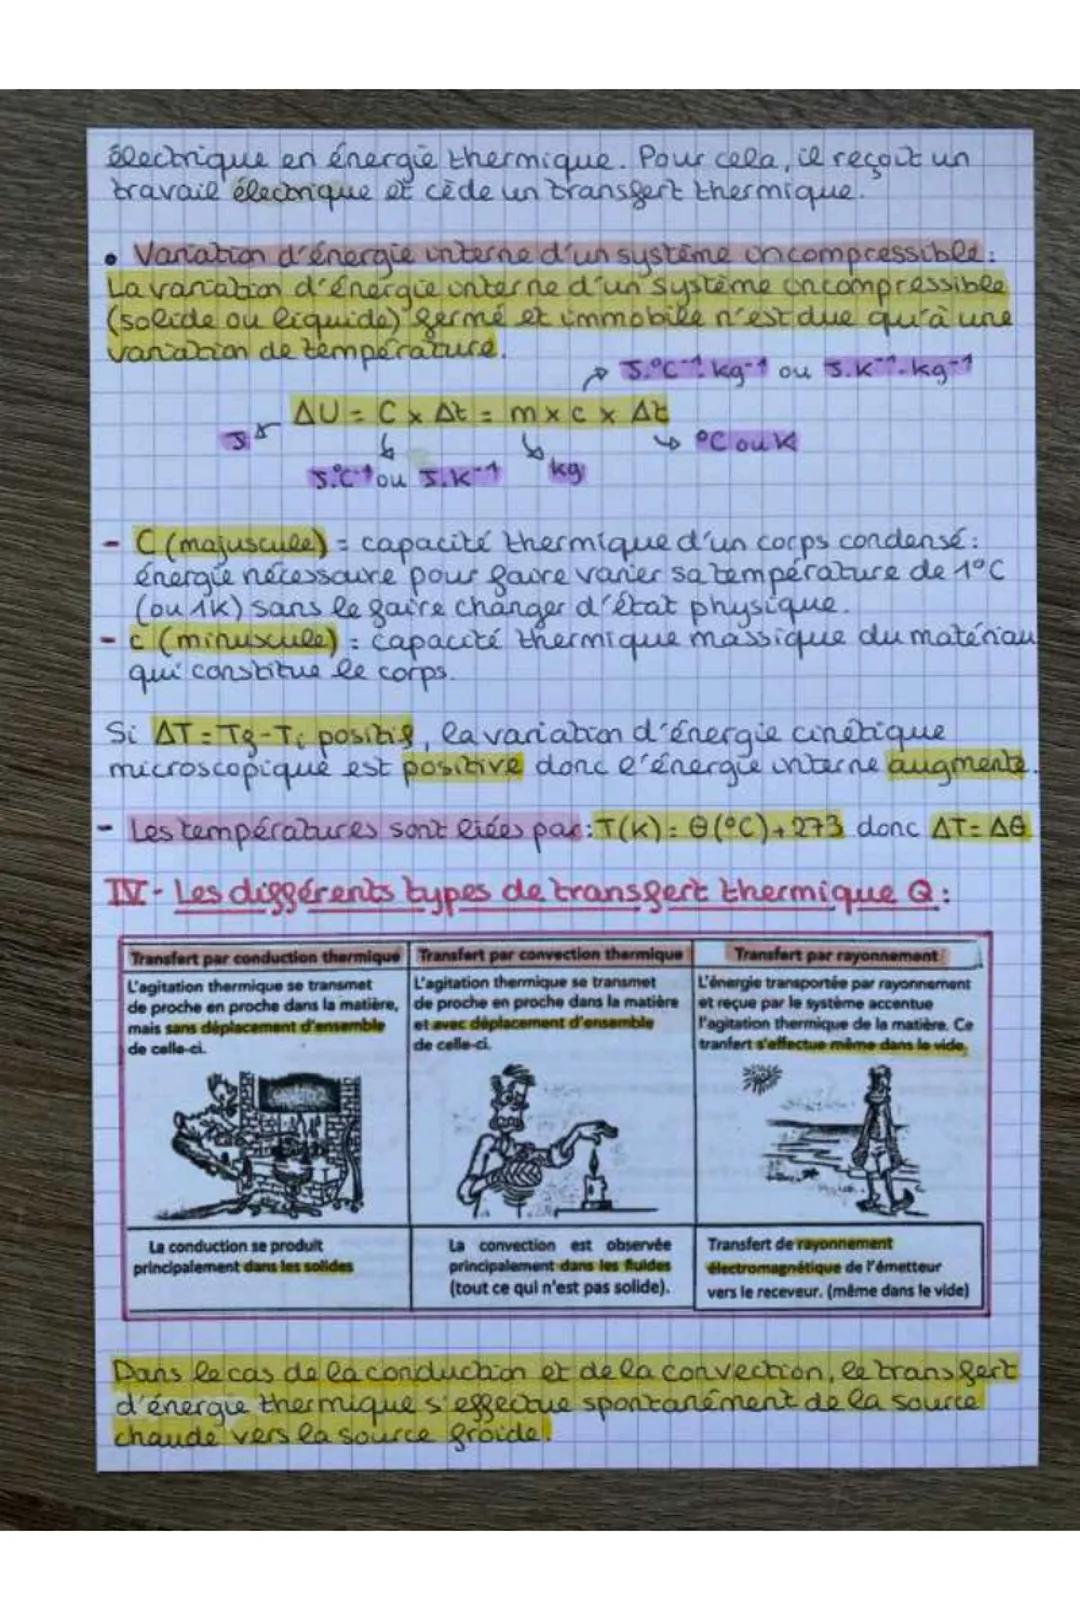 électrique en énergie thermique. Pour cela, il reçoit un
travail électrique et cède un transfert thermique.
• Variation d'énergie interne d'un système incompressible :
La variation d'énergie interne d'un système incompressible
(solide ou liquide) fermé et immobile n'est due qu'à une
variation de température.
J.°C⁻¹.kg⁻¹ ou J.K⁻¹.kg⁻¹
ΔU = C x Δt = m x c x Δt
J
°C ou K
J.°C⁻¹ ou J.K⁻¹
kg
- C (majuscule) = capacité thermique d'un corps condensé :
énergie nécessaire pour faire varier sa température de 1°C
(ou 1K) sans le faire changer d'état physique.
- c (minuscule) = capacité thermique massique du matériau
qui constitue le corps.
Si ΔT = Tf - Ti positif, la variation d'énergie cinétique
microscopique est positive donc l'énergie interne augmente.
- Les températures sont liées par : T(K) = θ(°C) + 273 donc ΔT = Δθ
IV - Les différents types de transfert thermique Q :
Transfert par conduction thermique
L'agitation thermique se transmet
de proche en proche dans la matière,
mais sans déplacement d'ensemble
de celle-ci.
La conduction se produit
principalement dans les solides
Transfert par convection thermique
L'agitation thermique se transmet
de proche en proche dans la matière
et avec déplacement d'ensemble
de celle-ci.
La convection est observée
principalement dans les fluides
(tout ce qui n'est pas solide).
Transfert par rayonnement
L'énergie transportée par rayonnement
et reçue par le système accentue
l'agitation thermique de la matière. Ce
tranfert s'effectue même dans le vide.
Transfert de rayonnement
électromagnétique de l'émetteur
vers le receveur. (même dans le vide)
Dans le cas de la conduction et de la convection, le transfert
d'énergie thermique s'effectue spontanément de la source
chaude vers la source froide.